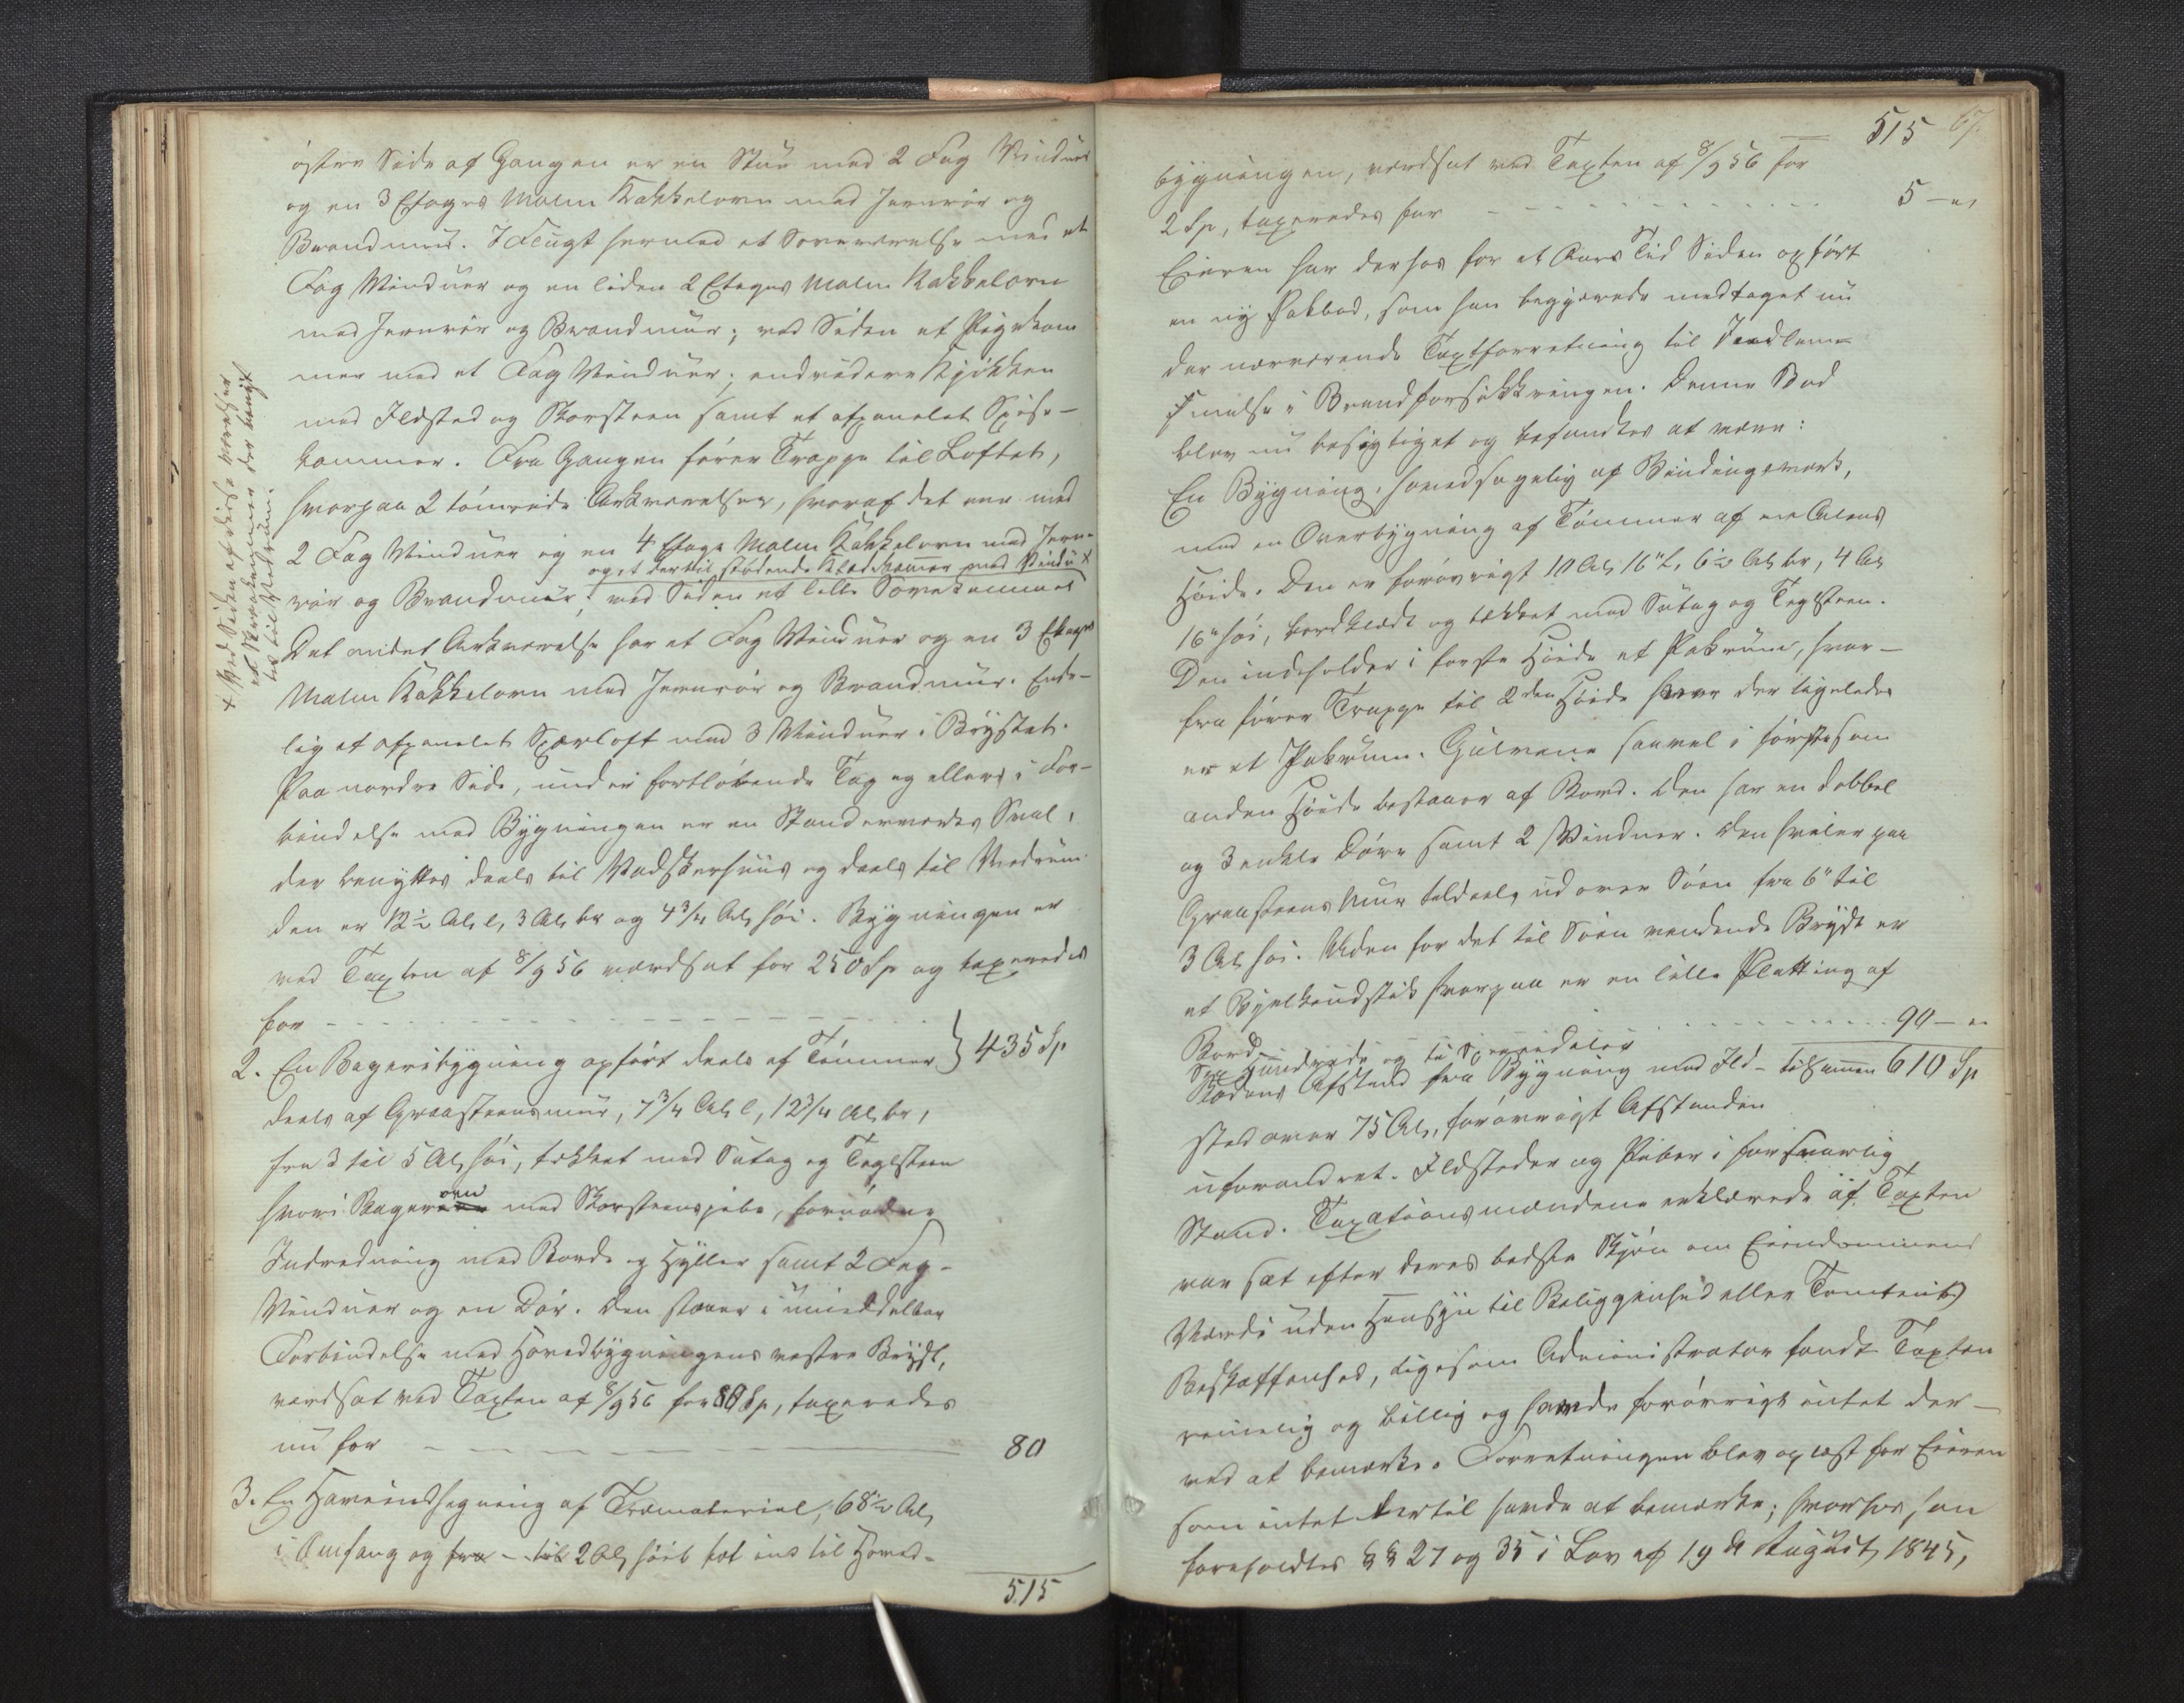 östre Side af Gangen er en Stue med 2 Fag Vinduer
og en 3 Etages Malm Kakkelovn med Jernrör og
Brandmuur. I Flugt hermed et Soveværelse med et
Fag Vinduer og en liden 2 Etages Malm Kakkelovn
med Jernrör og Brandmuur; ved Siden et Pigekam
mer med et Fag Vinduer; endvidere Kjökken
med Ildsted og Skorsteen samt et afpanelet Spise-
kammer. Fra Gangen förer Trappe til Loftet,
hvorpaa 2 tömrede Arkværelser, hvoraf det ene med
2 Fag Vinduer og en 4 Etages Malm Kakkelovn med Jern-
og et dertil stödende Klædekammer med Vindu x
rör og Brandmuur; ved Siden et lille Sovekammer
Det andet Arkværelse har et Fag Vinduer og en 3 Etages
Malm Kakkelovn med Jernrör og Brandmuur. Ende-
lig et afpanelet Spærloft med 3 Vinduer i Brystet.
Paa nordre Side, under fortlöbende Tag og ellers i For-
bindelse med Bygningen er en Stenderverks Sval,
der benyttes deels til Vadskerhuus og deels til Vedrum
den er 12½ Al. l, 3 Al. br og 4¾ Al. höi. Bygningen er
ved Taxten af 8/9 56 værdsat for 250 Sp og taxeredes
for
x Ved Siden af disse Værelser
et Skraakammer der benyt
tes til Vedrum.
2. En Bageribygning opfört deels af Tömmer } 435 Sp
deels af Graasteensmuur, 7¾ Al. l, 12¾ Al. br,
fra 3 til 5 Al. höi, tækket med Sutag og Teglsteen
hvori Bagerovn med Skorsteenspibe, fornöden
Indredning med Borde og Hyller samt 2 Fag-
Vinduer og en Dör. Den staaer i umiddelbar
Forbindelse med Hovedbygningens vestre Bryst,
værdsat ved Taxten af 8/9 56 for 80 Sp, taxeredes
nu for 80
3. En Haveindhegning af Træmaterial, 68½ Al.
i Omfang og fra - til 2 Al. höit tæt ind til Hoved-
515
515 67.
bygningen, værdsat ved Taxten af 8/9 56 for
2 Sp, taxeredes for 5 — "
Eieren har derhos for et Aars Tid Siden opfört
en ny Pakbod, som han begjærede medtaget un
der nærværende Taxtforretning til Indlem-
melse i Brandforsikkringen. Denne Bod
blev nu besigtiget og befandtes at være:
En Bygning, hovedsagelig af Bindingsverk,
med en Overbygning af Tömmer af en Alens
Höide. Den er forövrigt 10 Al. 16" l, 6½ Al. br, 4 Al.
16" höi, bordklædt og tækket med Sutag og Teglsteen.
Den indeholder i förste Höide et Pakrum, hvor-
fra förer Trappe til 2den Höide hvor der ligeledes
er et Pakrum. Gulvene saavel i förste som
anden Höide bestaaer af Bord. Den har en dobbel
og 3 enkle Döre samt 2 Vinduer. Den hviler paa
Graasteens Muur tildeels ud over Söen fra 6" til
3 Al. höi. Uden for det til Söen vendende Bryst er
et Bjelkeudstik hvorpaa er en lille Platting af
Bord 90 — "
Sex Hundrede og ti Speciedaler
Bodens Afstand fra Bygning med Ild- tilsammen 610 Sp
sted over 75 Al., forövrigt Afstanden
uforandret. Ildsteder og Piber i forsvarlig
Stand. Taxationsmændene erklærede at Taxten
var sat efter deres bedste Skjön om Eiendommens
Værdi uden Hensyn til Beliggenhed eller Tomtens
Beskaffenhed, ligesom Administrator fandt Taxten
rimelig og billig og havde forövrigt intet der-
ved at bemærke. Forretningen blev oplæst for Eieren
som intet dertil havde at bemærke; hvorhos han
foreholdtes §§ 27 og 35 i Lov af 19de August 1845,